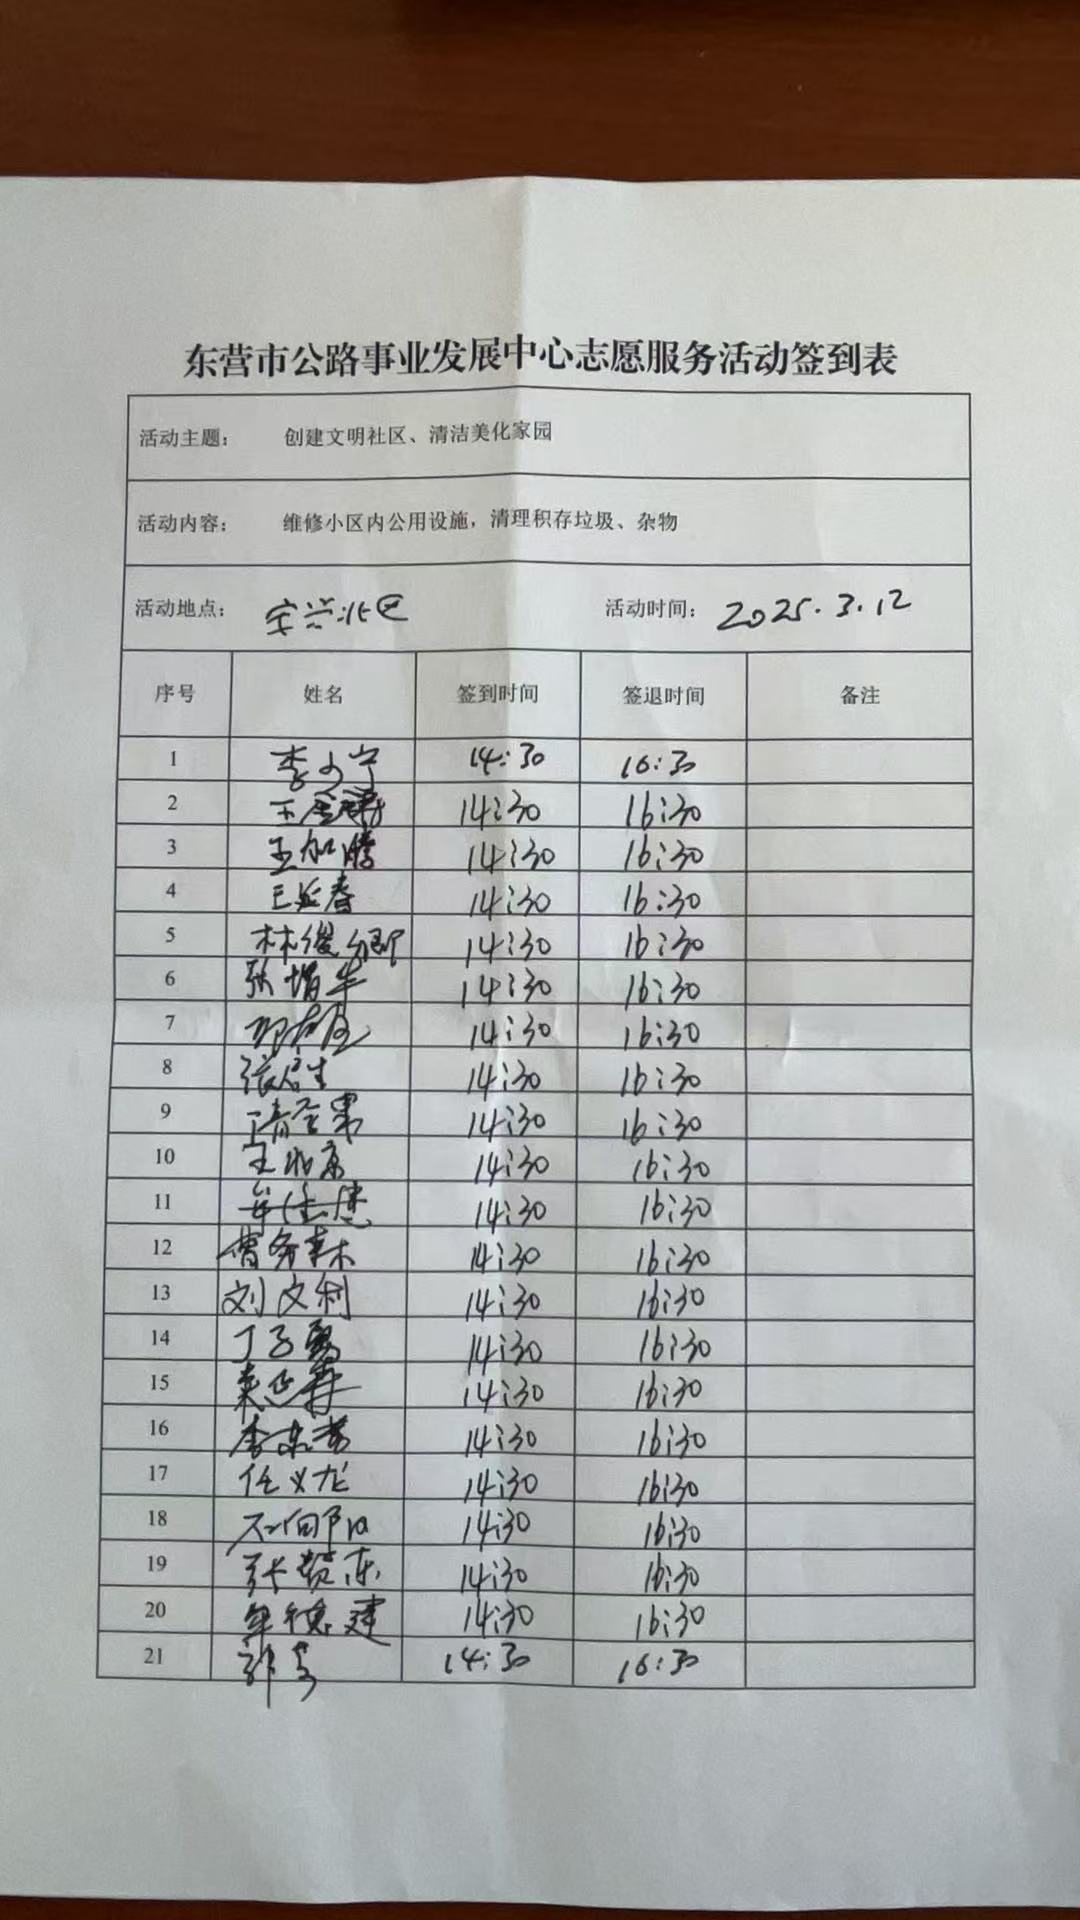 东营市公路事业发展中心志愿服务活动签到表
活动主题: 创建文明社区、清洁美化家园
活动内容: 维修小区内公用设施，清理积存垃圾、杂物
活动地点: 安兴北区 活动时间: 2025.3.12
序号 姓名 签到时间 签退时间 备注
1 李少宁 14:30 16:30
2 14:30 16:30
3 王加腾 14:30 16:30
4 王延春 14:30 16:30
5 林俊卿 14:30 16:30
6 张增华 14:30 16:30
7 14:30 16:30
8 张启生 14:30 16:30
9 14:30 16:30
10 14:30 16:30
11 14:30 16:30
12 曹务森 14:30 16:30
13 刘文利 14:30 16:30
14 丁子勇 14:30 16:30
15 14:30 16:30
16 李东营 14:30 16:30
17 任义龙 14:30 16:30
18 石向阳 14:30 16:30
19 张赞东 14:30 16:30
20 牟德建 14:30 16:30
21 14:30 16:30